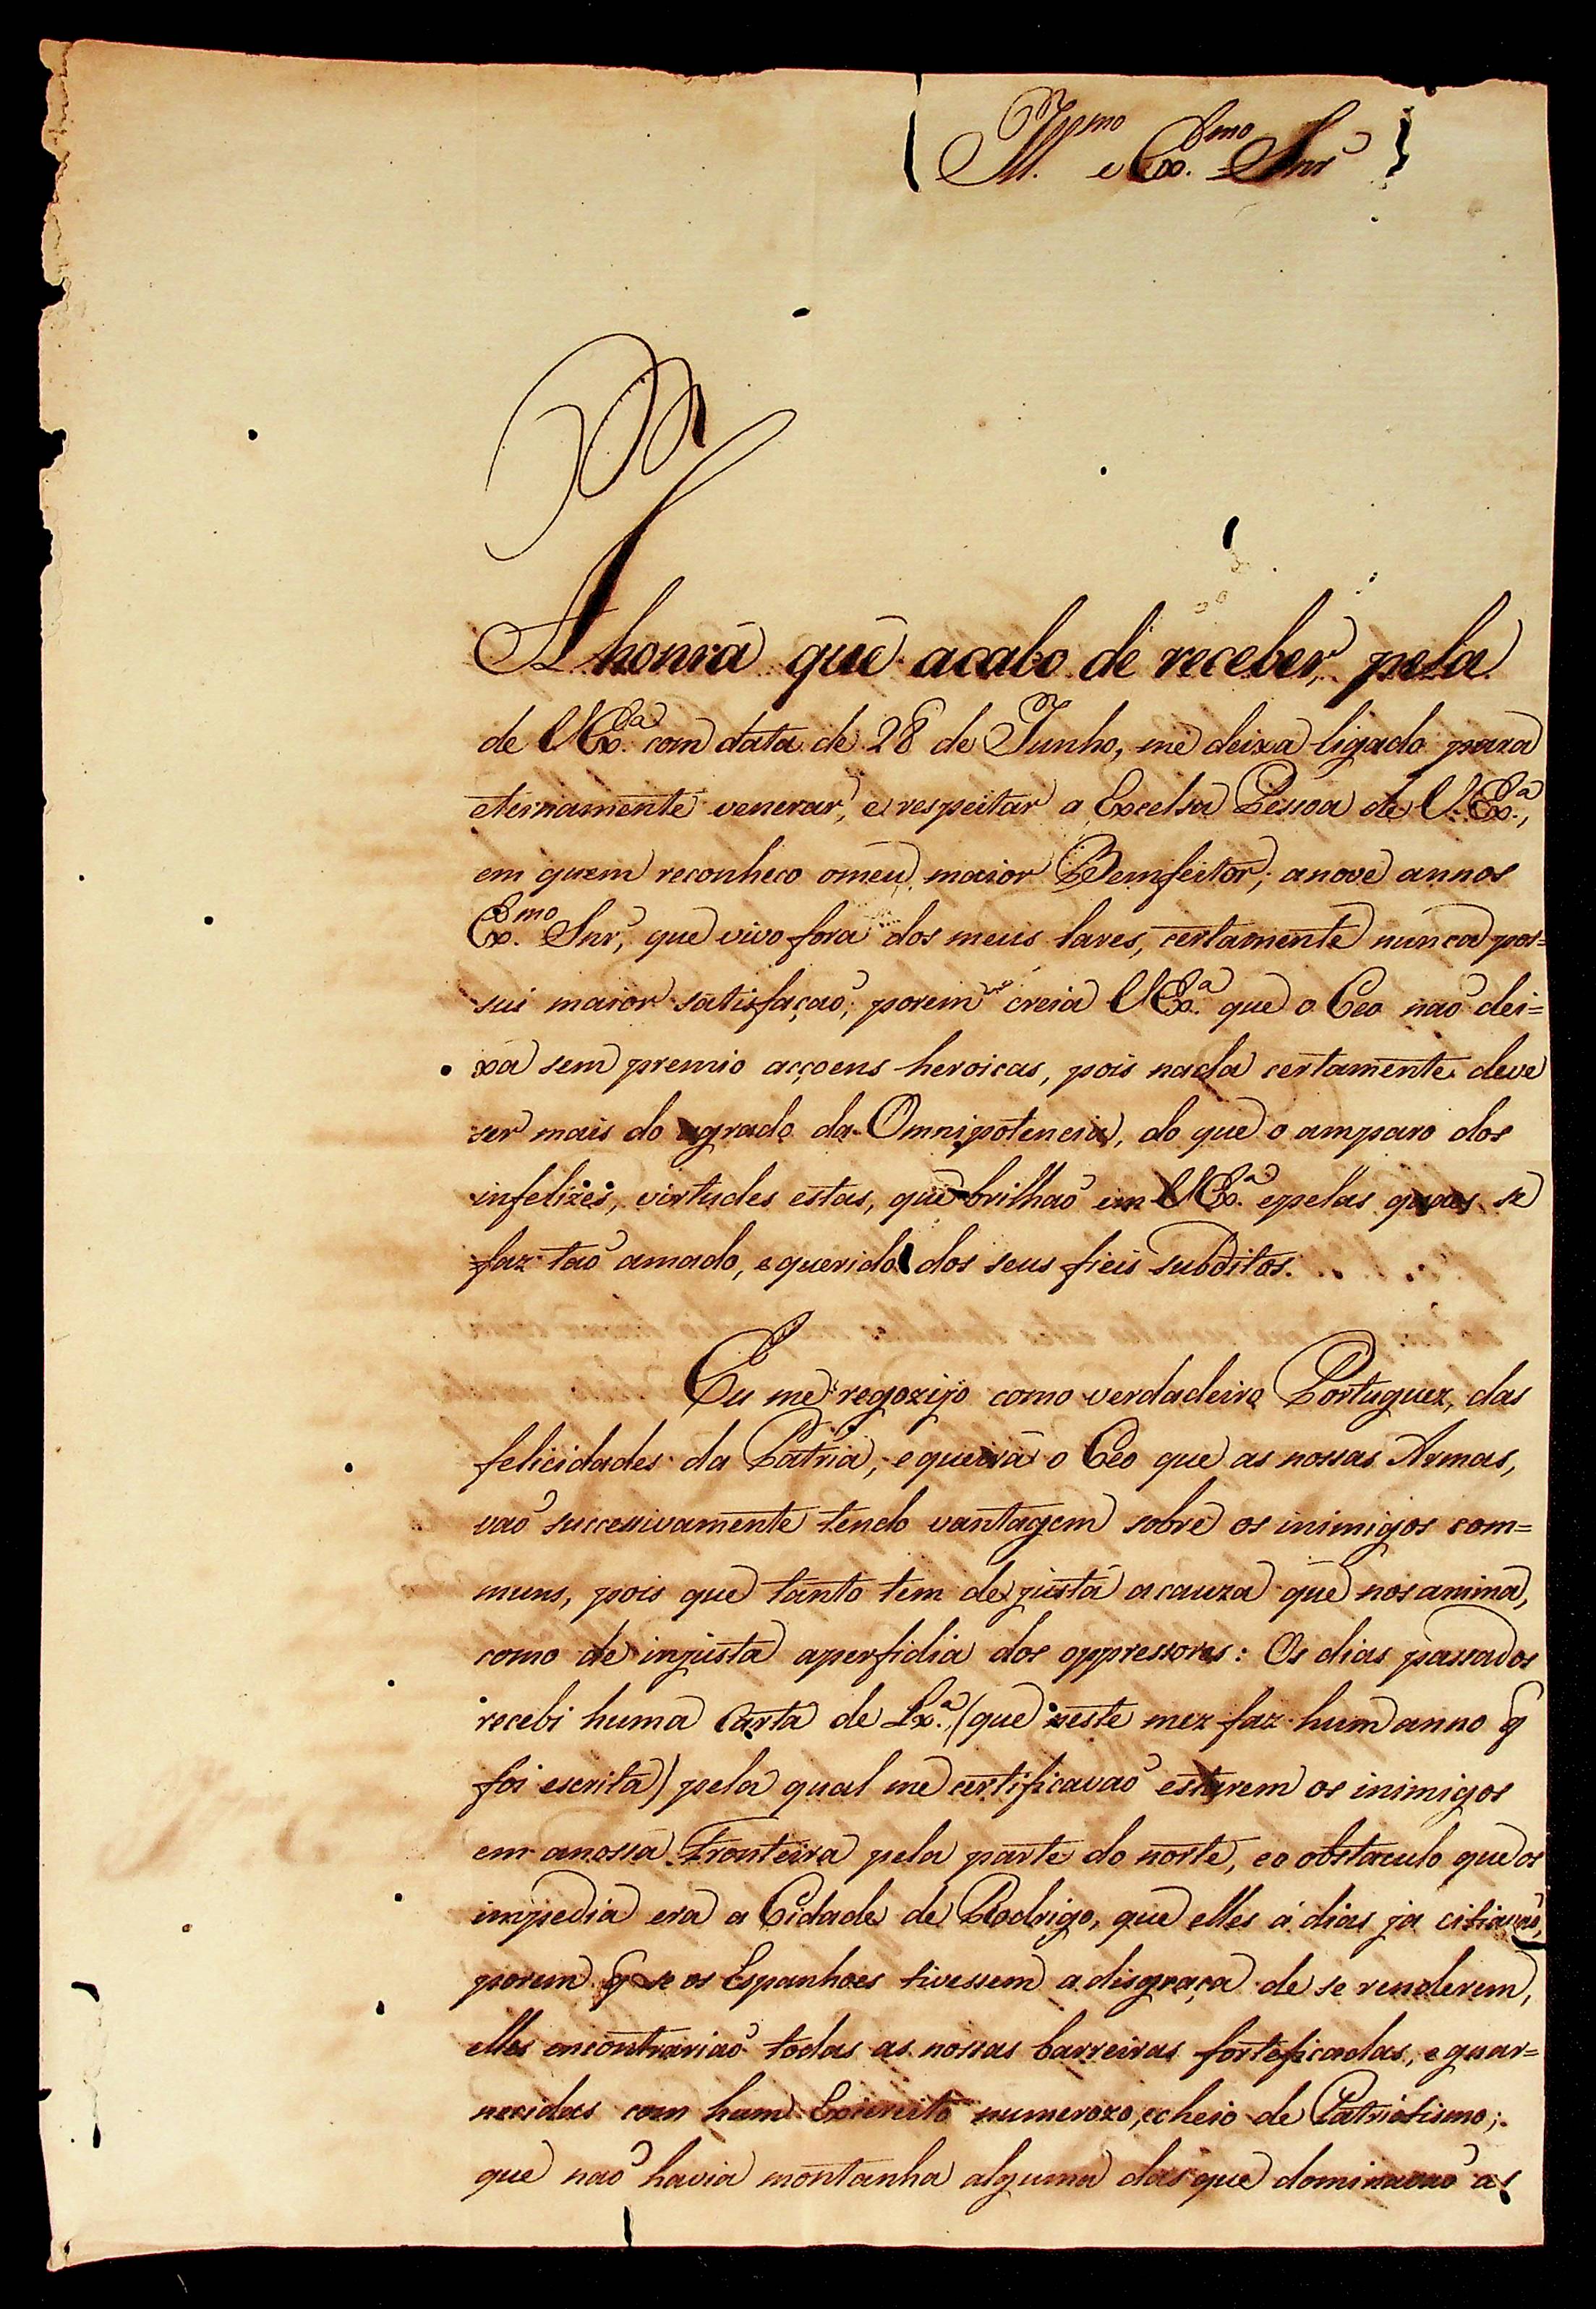 Ill.mo e Ex.mo Snr
A honra que acabo de receber, pela
de VEx.a com data de 28 de Junho, me deixa ligado para
eternamente venerar, e respeitar a Excelsa Pessoa de V.Ex.a,
em quem reconheco omeu maior Bemfeitor; anove annos
Ex.mo Snr, que vivo fora dos meus lares, certamente nunca pos=
sui maior satisfaçaõ; porem creia VEx.a que o Ceo naõ dei=
xa sem premio acçoens heroicas, pois nada certamente deve
ser mais do agrado da Omnipotencia, do que o amparo dos
infelizes, virtudes estas, que brilhaõ em VEx.a epelas quaes se
faz taõ amado, e querido dos seus fieis subditos.
Eu me regozijo como verdadeiro Portuguez, das
felicidades da Patria, e queira o Ceo que as nossas Armas,
vaõ successivamente tendo vantagem sobre os inimigos com=
muns, pois que tanto tem de justa acauza que nos anima,
como de injusta aperfidia dos oppressores: Os dias passados
recebi huma Carta de Lx.a, (que neste mez faz hum anno q̃
foi escrita) pela qual me certificavaõ estarem os inimigos
em anossa Fronteira pela parte do norte, eo obstaculo que os
impedia era a Cidade de Rodrigo, que elles á dias ja citiavaõ,
porem q̃ se os Espanhoes tivessem adisgraça de se renderem,
elles encontrariaõ todas as nossas barreiras forteficadas, e guar=
necidas com hum Exercito numerozo, echeio de Patriotismo;
que naõ havia montanha alguma das que dominavaõ as